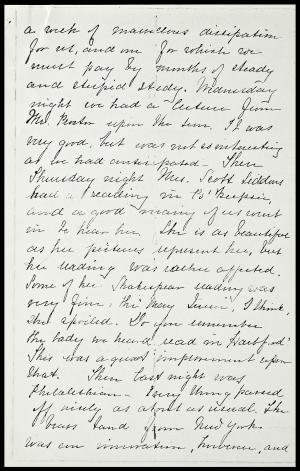 a week of marvelous dissipation
for us, and one for which we
must pay by months of steady
and stupid study. Wednesday
night we had a lecture from
Mr. Proctor upon the sun. It was
very good, but was not so interesting
as we had anticipated. Then
Thursday night Mrs. Scott Siddons
had a reading in Po'keepsie,
and a good many of us went
in to hear her. She is as beautiful
as her pictures represent her, but
her reading was rather affected.
Some of her Shakespear reading was
very fine, the May Queen, I think,
she spoiled. Do you remember
the lady we heard read in Hartford?
This was a great improvement upon
that. Then last night was
Philalethean. Every thing passed
off nicely as about as usual. The
brass band from New York
was an innovation, however, and